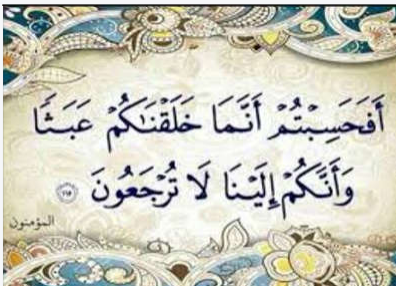 أَفَحَسِبْتُمْ أَنَّمَا خَلَقْنَاكُمْ عَبَثًا
وَأَنَّكُمْ إِلَيْنَا لَا تُرْجَعُونَ ﴿١١٥﴾
المؤمنون